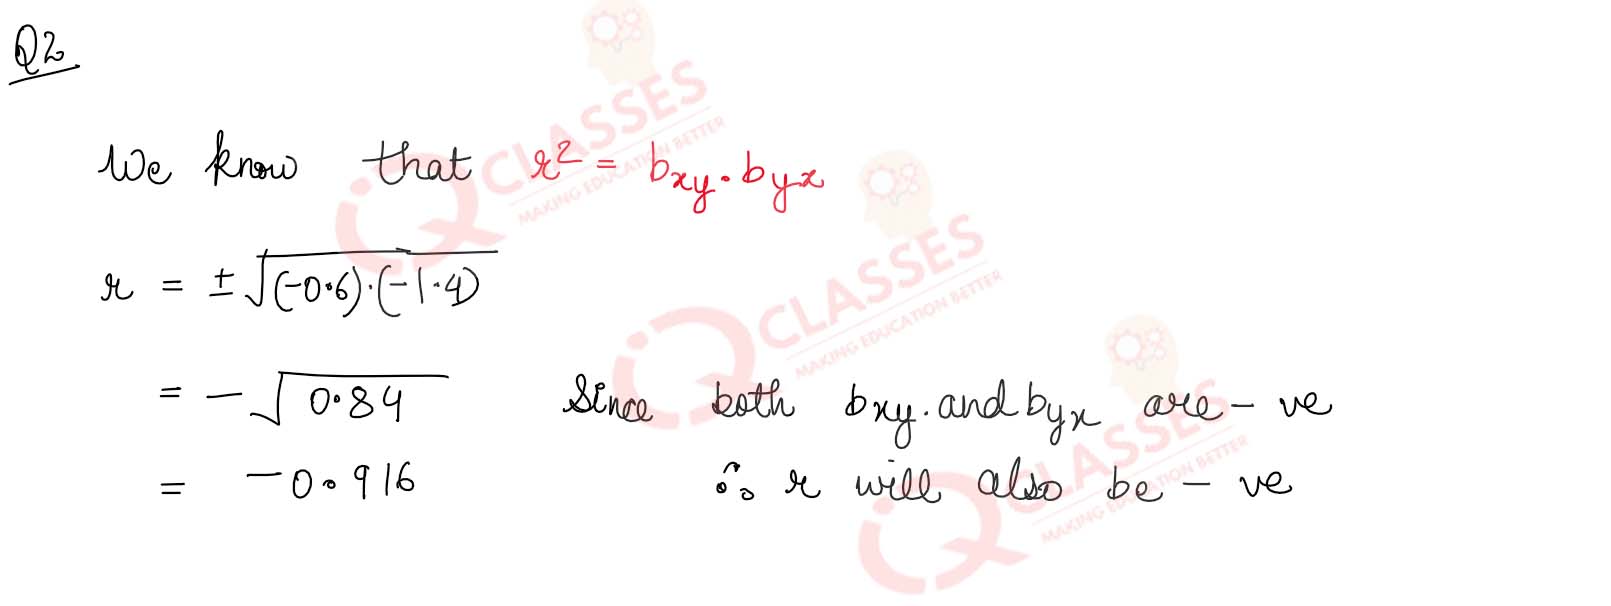 Q2
We know that r² = bxy . byx
r = ± √(-0.6).(-1.4)
= - √0.84 Since both bxy. and byx are - ve
= -0.916 ∴ r will also be - ve
IQ CLASSES
MAKING EDUCATION BETTER
IQ CLASSES
MAKING EDUCATION BETTER
IQ CLASSES
MAKING EDUCATION BETTER